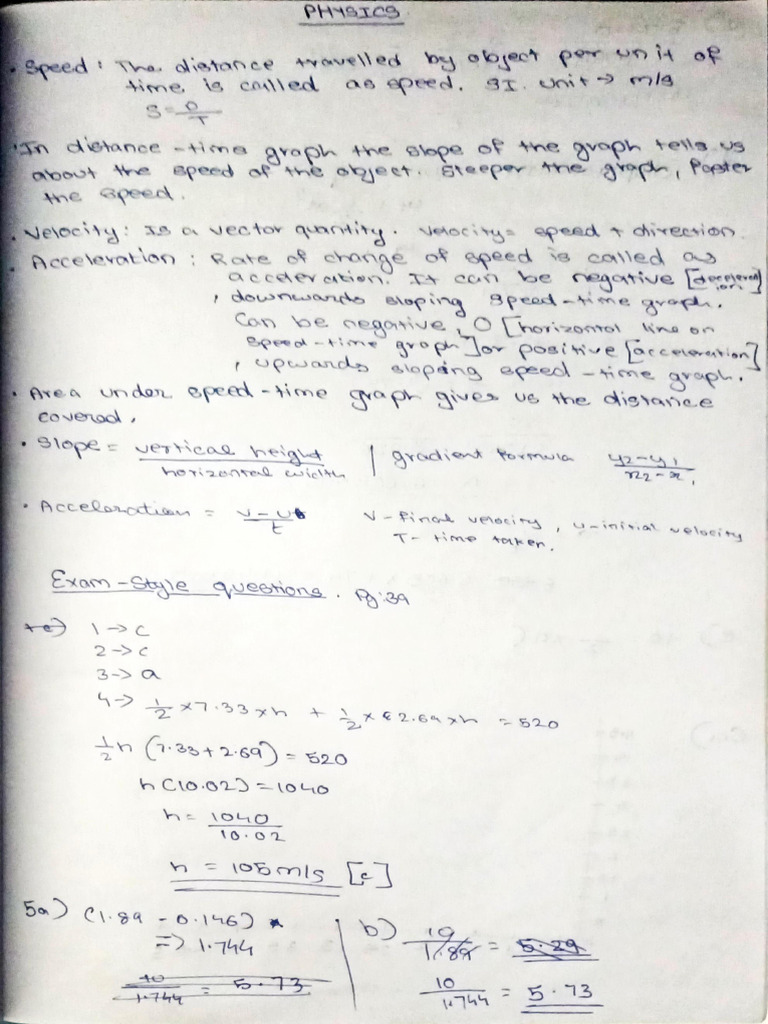 PHYSICS
• Speed : The distance travelled by object per unit of
time is called as speed. SI. unit → m/s
S = D/T
• In distance-time graph the slope of the graph tells us
about the speed of the object. Steeper the graph, Faster
the speed.
• Velocity: Is a vector quantity. Velocity = speed + direction.
• Acceleration : Rate of change of speed is called as
acceleration. It can be negative
, downwards sloping speed-time graph.
Can be negative, 0 [horizontal line on
speed-time graph] or positive [acceleration]
, upwards sloping speed-time graph.
• Area under speed-time graph gives us the distance
covered.
• Slope = vertical height / horizontal width | gradient formula y₂-y₁ / x₂-x₁
• Acceleration = v-u / t V-final velocity, u-initial velocity
T- time taken.
Exam-Style questions. Pg:39
1 → c
2 → c
3 → a
4 → 1/2 x 7.33 x h + 1/2 x 2.69 x h = 520
1/2 h (7.33 + 2.69) = 520
h (10.02) = 1040
h = 1040 / 10.02
h = 105 m/s [c]
5a) (1.89 - 0.146)
=> 1.744
10 / 1.744 = 5.73
b) 10 / 1.89 = 5.29
10 / 1.744 = 5.73